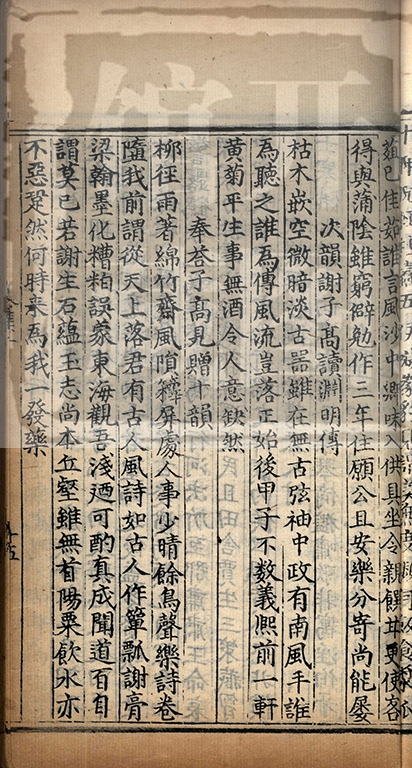 葅已佳茹誰言風沙中鄉味入供具坐令親饌甘更使客
得與蒲陰雖窮僻勉作三年住願公且安樂分寄尚能屢
次韻謝子髙讀淵明傳
枯木嵌空微暗淡古器雖在無古弦袖中政有南風手誰
為聽之誰為傳風流豈落正始後甲子不數義熈前一軒
黄菊平生事無酒令人意缺然
奉荅子髙見贈十韻
柳徑雨著綿竹齋風隕籜屏處人事少晴餘鳥聲樂詩卷
墮我前謂從天上落君有古人風詩如古人作簞瓢謝膏
梁翰墨化糟粕誤蒙東海觀吾淺廼可酌真成聞道百自
謂莫已若謝生石蘊玉志尚本丘壑雖無首陽粟飲水亦
不惡粲然何時来為我一發藥